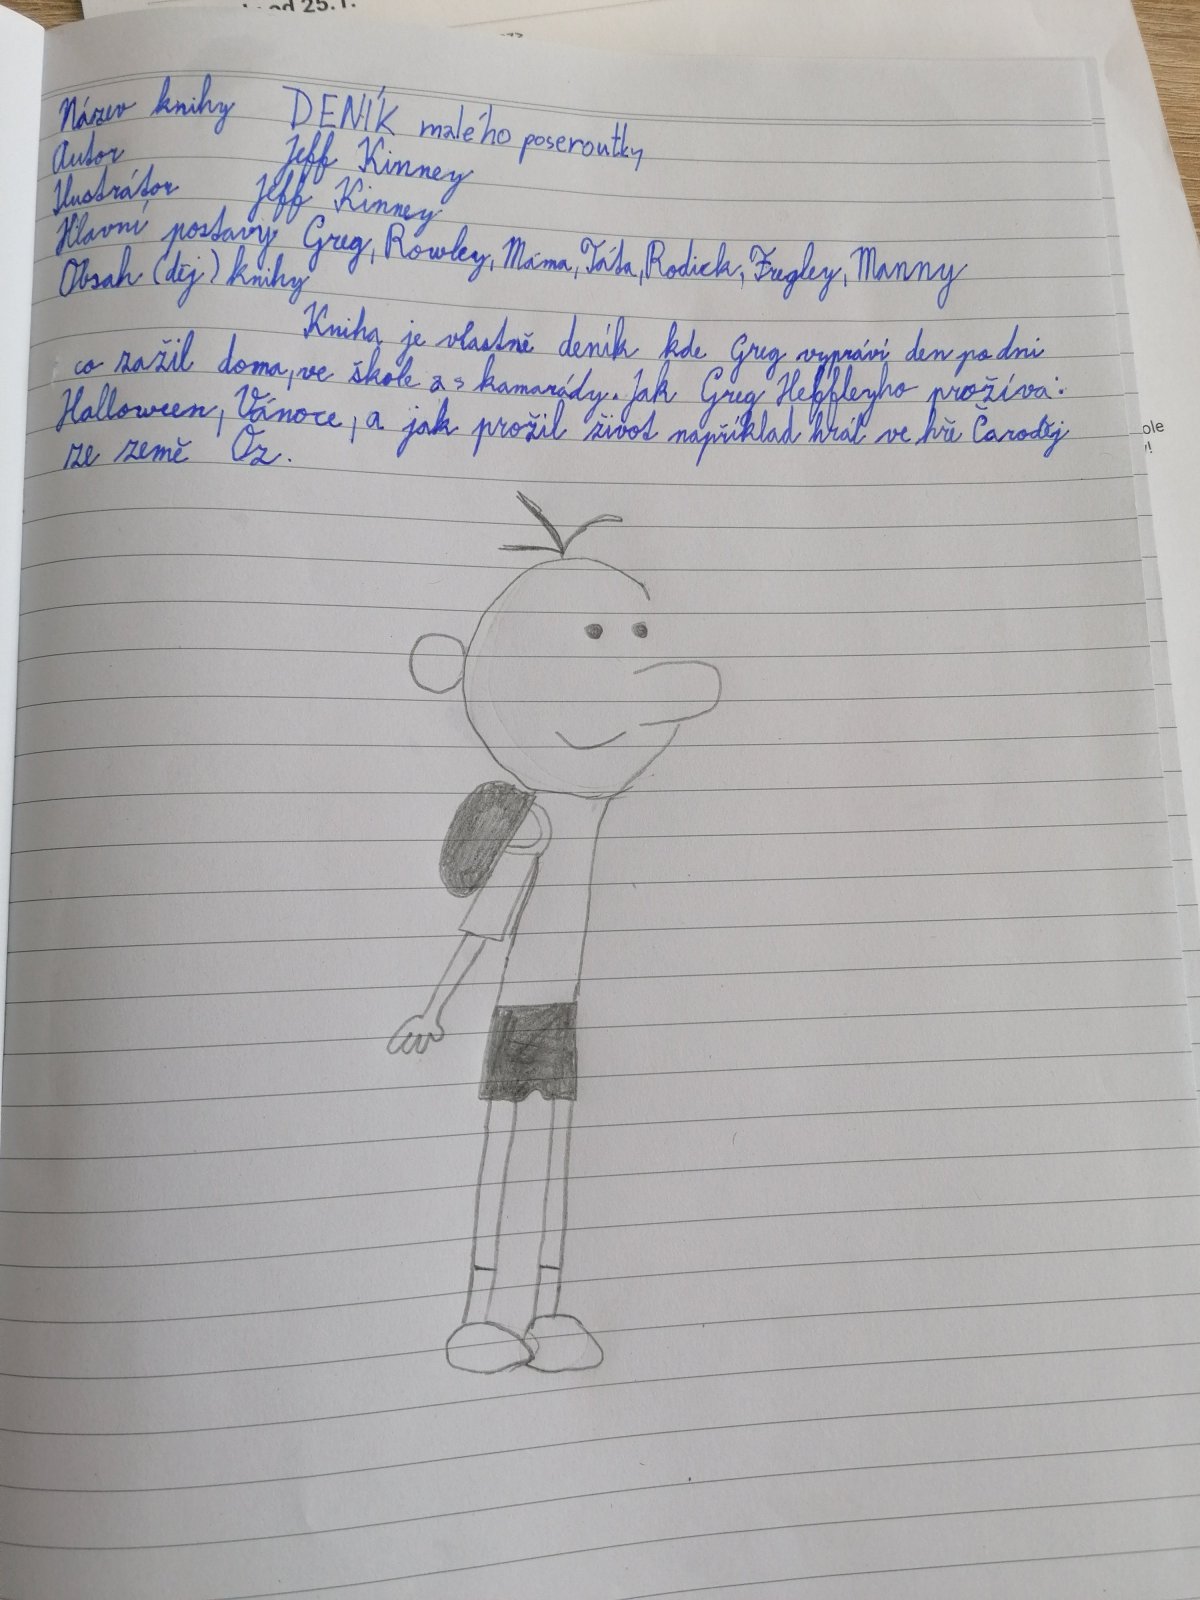 od 25.1.
Název knihy DENÍK malého poseroutky
Autor Jeff Kinney
Ilustrátor Jeff Kinney
Hlavní postavy Greg, Rowley, Máma, Táta, Rodick, Fregley, Manny
Obsah (děj) knihy
Kniha je vlastně deník kde Greg vypráví den po dni
co zažil doma, ve škole a s kamarády. Jak Greg Heffleyho prožívá:
Halloween, Vánoce, a jak prožil život například hrál ve hře Čaroděj
ze země Oz.